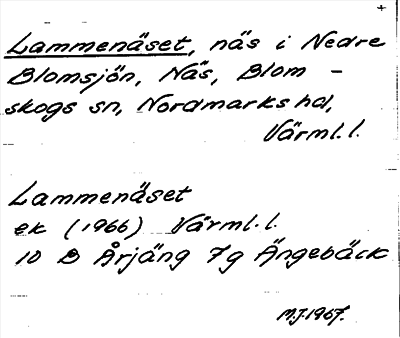 Lammenäset, näs i Nedre
Blomsjön, Näs, Blom-
skogs sn, Nordmarks hd,
Värml. l.
Lammenäset
ek (1966) Värml. l.
10 B Årjäng 7g Ängebäck
M.J. 1967.